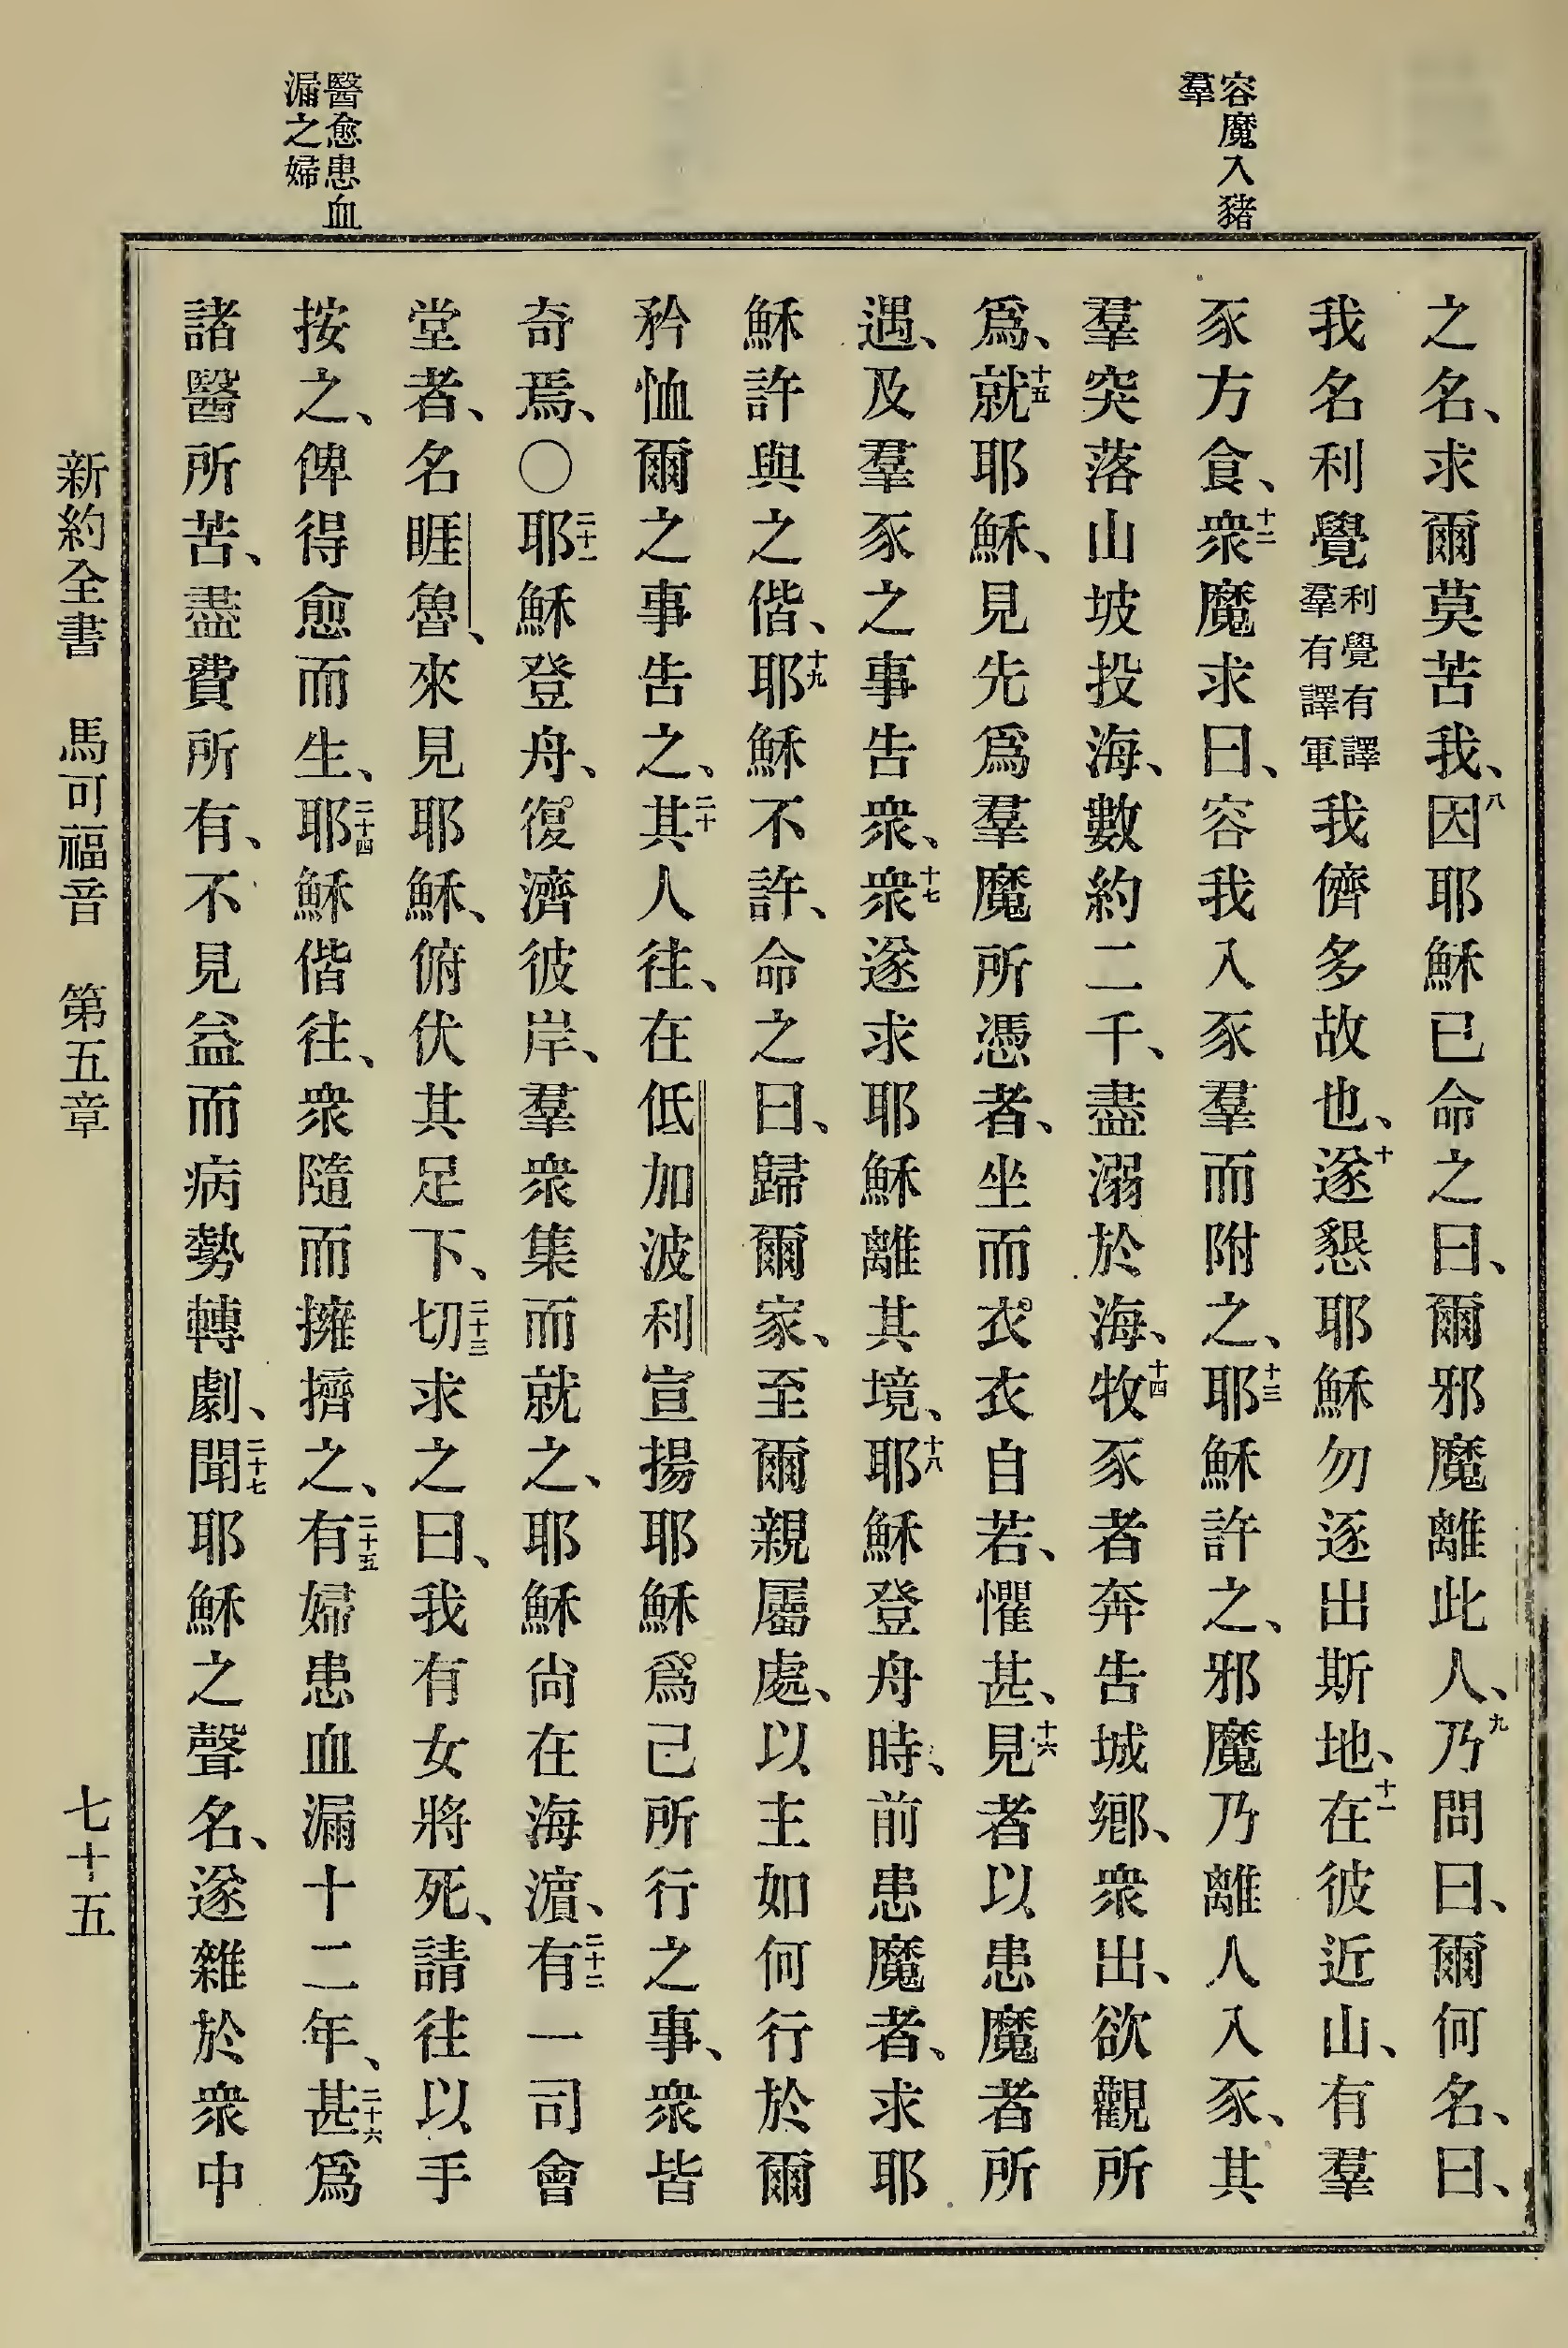 容魔入豬
羣
醫愈患血
漏之婦
之名、求爾莫苦我、八因耶穌已命之曰、爾邪魔離此人、九乃問曰、爾何名、曰、
我名利覺利覺有譯羣有譯軍我儕多故也、十遂懇耶穌勿逐出斯地、十一在彼近山、有羣
豕方食、十二衆魔求曰、容我入豕羣而附之、十三耶穌許之、邪魔乃離人入豕、其
羣突落山坡投海、數約二千、盡溺於海、十四牧豕者奔告城鄉、衆出、欲觀所
爲、十五就耶穌、見先爲羣魔所憑者、坐而衣衣自若、懼甚、十六見者以患魔者所
遇、及羣豕之事告衆、十七衆遂求耶穌離其境、十八耶穌登舟時、前患魔者、求耶
穌許與之偕、十九耶穌不許、命之曰、歸爾家、至爾親屬處、以主如何行於爾
矜恤爾之事告之、二十其人往、在低加波利宣揚耶穌爲己所行之事、衆皆
奇焉、○二十一耶穌登舟、復濟彼岸、羣衆集而就之、耶穌尙在海濱、二十二有一司會
堂者、名睚魯、來見耶穌、俯伏其足下、二十三切求之曰、我有女將死、請往以手
按之、俾得愈而生、二十四耶穌偕往、衆隨而擁擠之、二十五有婦患血漏十二年、二十六甚爲
諸醫所苦、盡費所有、不見益而病勢轉劇、二十七聞耶穌之聲名、遂雜於衆中
新約全書 馬可福音 第五章 七十五